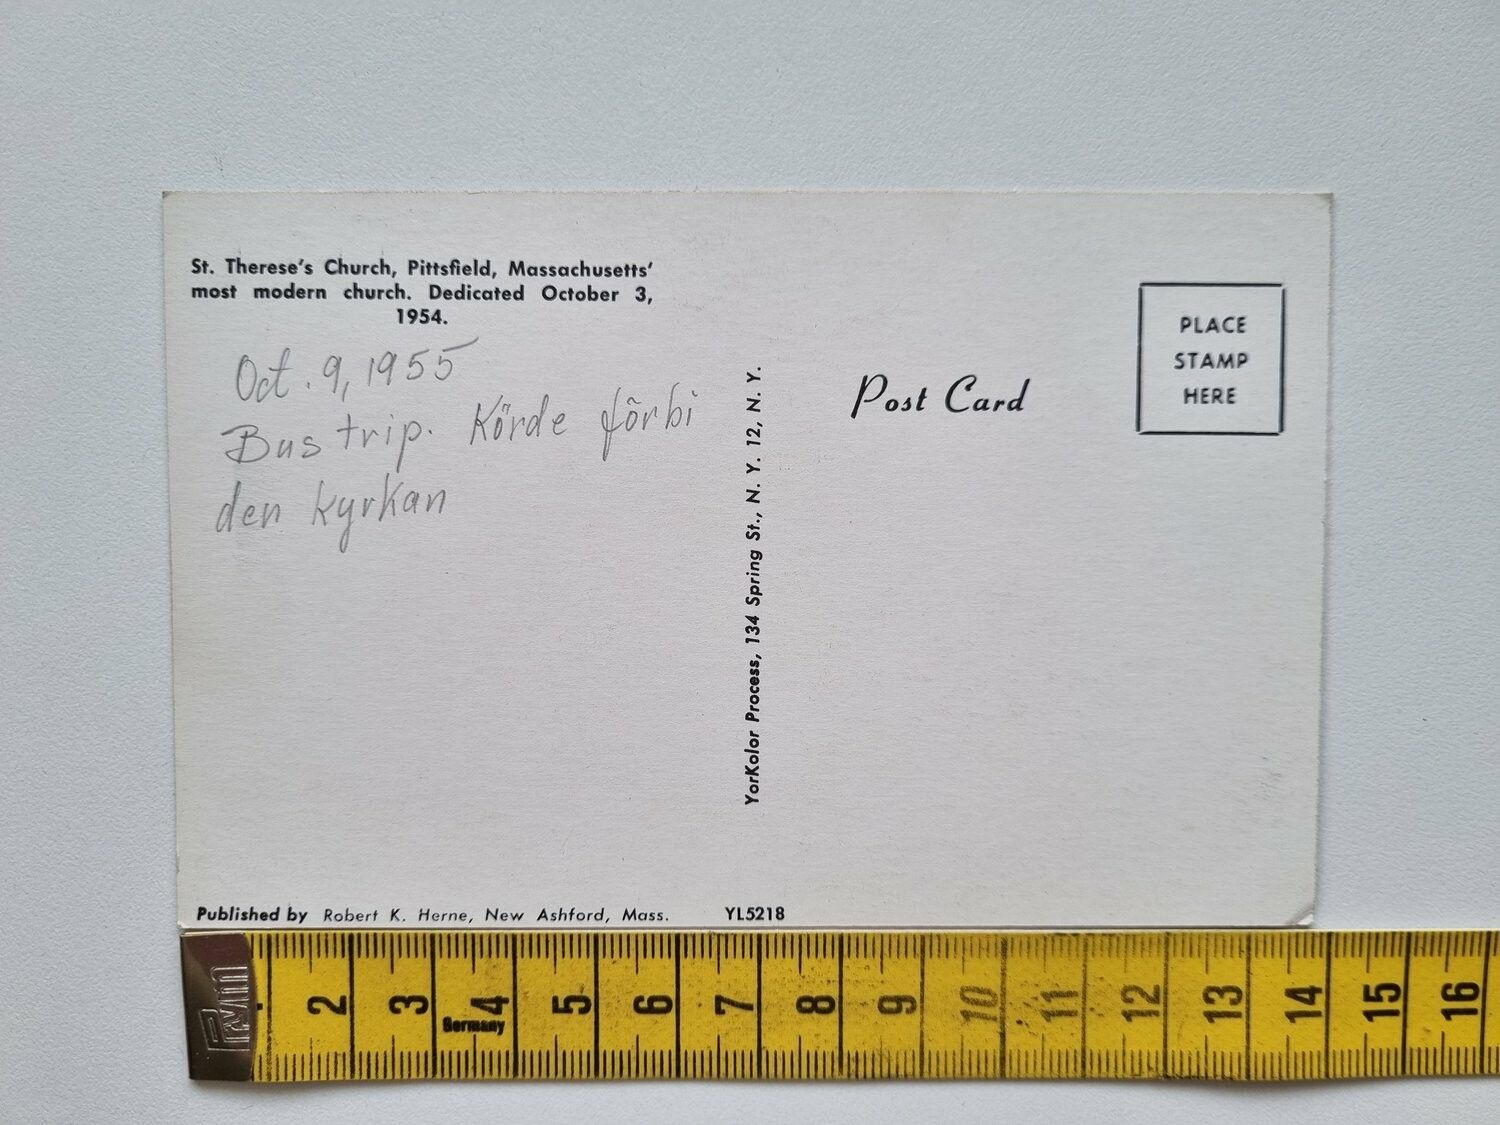 St. Therese's Church, Pittsfield, Massachusetts'
most modern church. Dedicated October 3,
1954.
Oct. 9, 1955
Bus trip. Körde förbi
den kyrkan
YorKolor Process, 134 Spring St., N. Y. 12, N. Y.
Post Card
PLACE
STAMP
HERE
Published by Robert K. Herne, New Ashford, Mass. YL5218
2 3 4 5 6 7 8 9 10 11 12 13 14 15 16
Germany